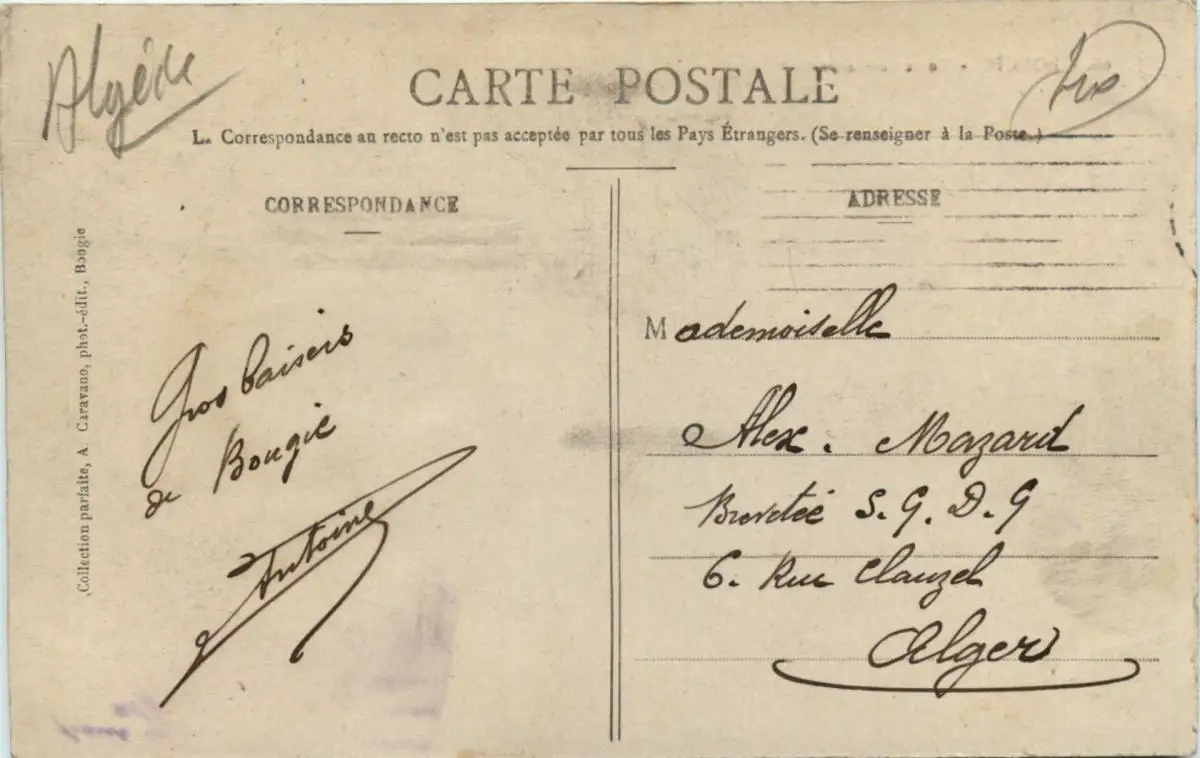 CARTE POSTALE
La Correspondance au recto n'est pas acceptée par tous les Pays Étrangers. (Se renseigner à la Poste.)
CORRESPONDANCE
Gros baisers
de Bougie
Antoine
Collection parfaite, A. Caravano, phot.-édit., Bougie
ADRESSE
Mademoiselle
Alex. Mazard
Brevetée S. G. D. G
6. Rue Clauzel
Alger